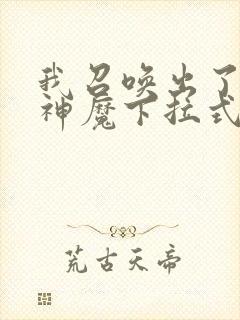 我召唤出了
神魔下拉式
荒古天帝